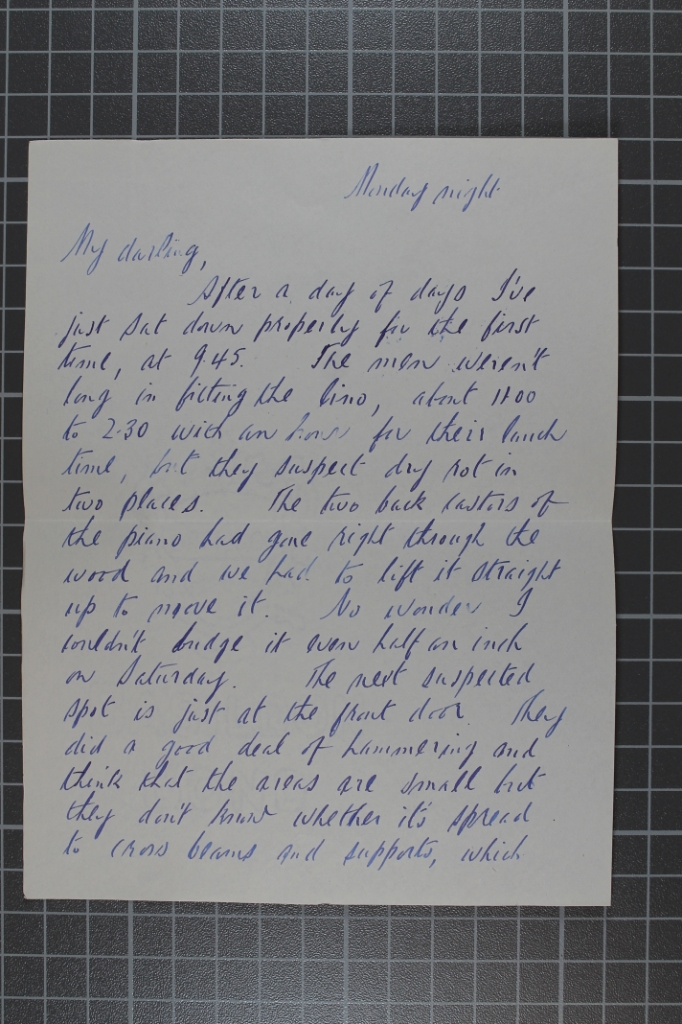 Monday night
My darling,
After a day of days I've
just sat down properly for the first
time, at 9.45. The men weren't
long in fitting the lino, about 11.00
to 2.30 with an hour for their lunch
time, but they suspect dry rot in
two places. The two back castors of
the piano had gone right through the
wood and we had to lift it straight
up to move it. No wonder I
couldn't budge it even half an inch
on Saturday. The next suspected
spot is just at the front door. They
did a good deal of hammering and
think that the areas are small but
they don't know whether it's spread
to cross beams and supports, which